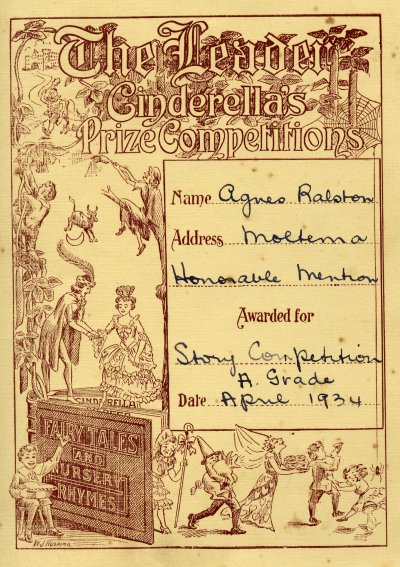 The Leader
Cinderella's
Prize Competitions
Name Agnes Ralston
Address Moltema
Honorable Mention
Awarded for
Story Competition
A. Grade
Date April 1934
CINDERELLA
FAIRY TALES
AND
NURSERY
RHYMES
W.J. Hosking